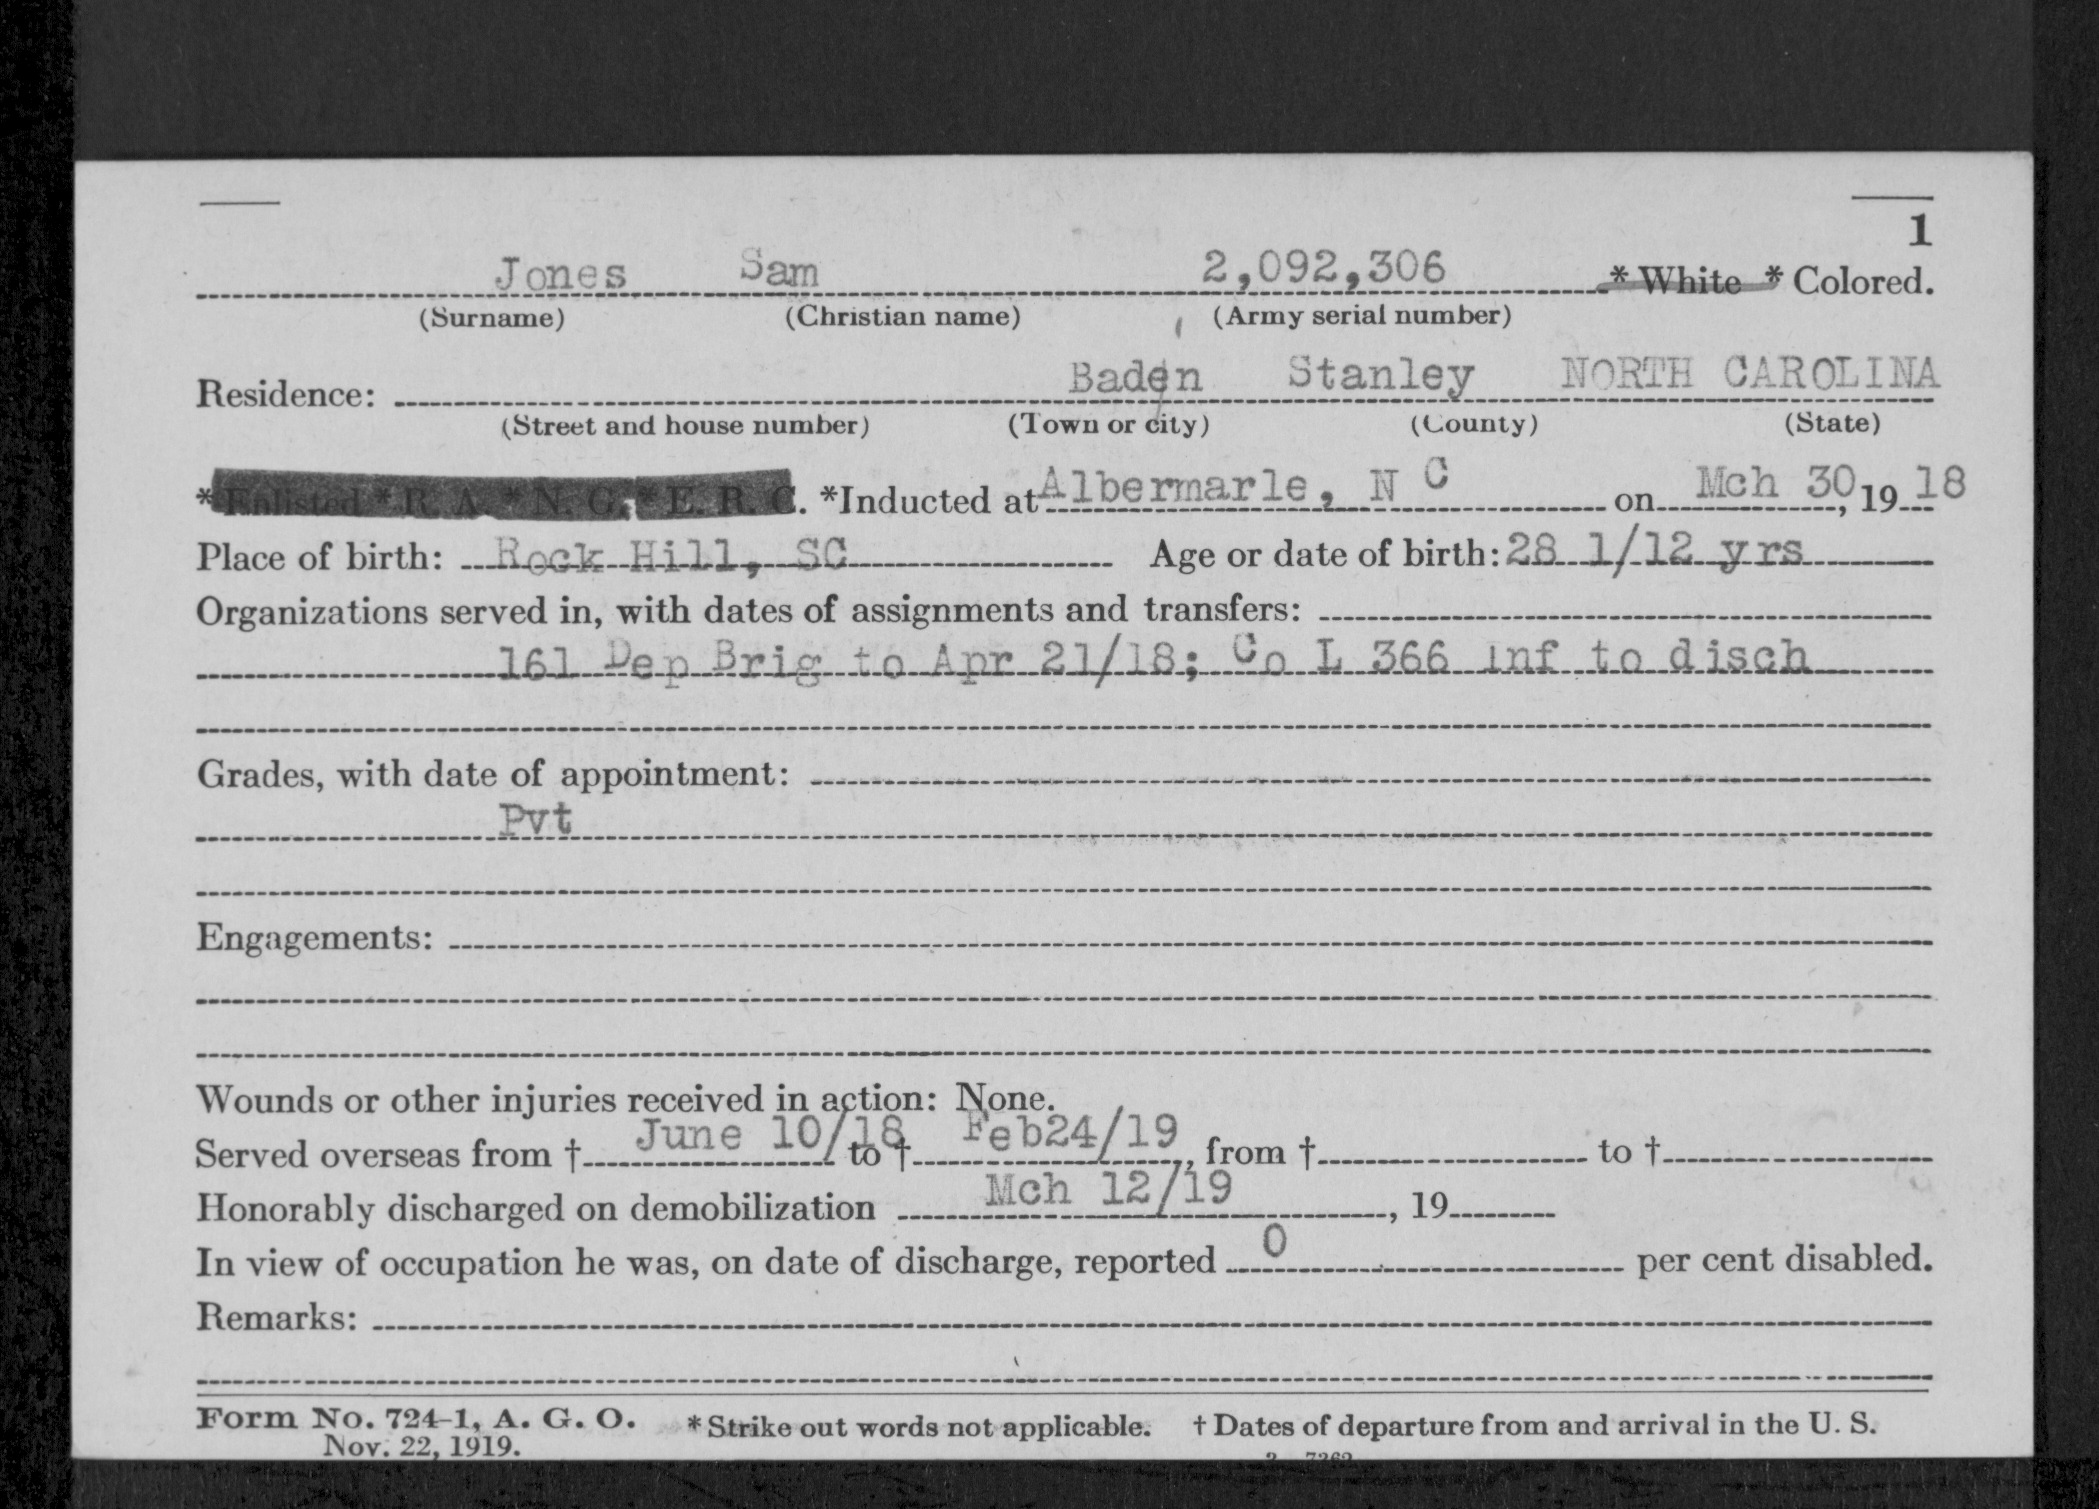 1
Jones Sam 2,092,306 * White * Colored.
(Surname) (Christian name) (Army serial number)
Residence: Baden Stanley NORTH CAROLINA
(Street and house number) (Town or city) (County) (State)
* Enlisted * R. A. * N. G. * E. R. C. *Inducted at Albermarle, N C on Mch 30, 19 18
Place of birth: Rock Hill, SC Age or date of birth: 28 1/12 yrs
Organizations served in, with dates of assignments and transfers:
161 Dep Brig to Apr 21/18; Co L 366 Inf to disch
Grades, with date of appointment:
Pvt
Engagements:
Wounds or other injuries received in action: None.
Served overseas from † June 10/18 to † Feb24/19, from † to †
Honorably discharged on demobilization Mch 12/19, 19
In view of occupation he was, on date of discharge, reported 0 per cent disabled.
Remarks:
Form No. 724-1, A. G. O. * Strike out words not applicable. † Dates of departure from and arrival in the U. S.
Nov. 22, 1919.